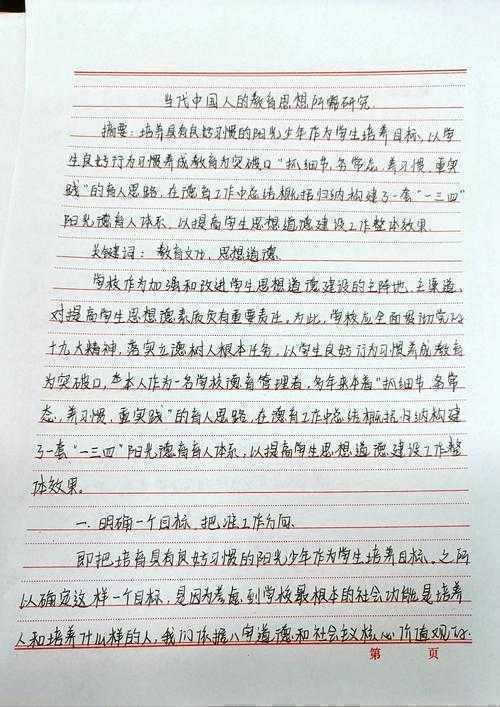 当代中国人的教育思想所需研究
摘要：培养具有良好习惯的阳光少年作为学生培养目标，以学
生良好行为习惯养成教育为突破口"抓细节，务常态，养习惯，重实
践"的育人思路，在德育工作中总结概括归纳构建了一套"一三四"
阳光德育人体系，以提高学生思想道德建设工作整体效果。
关键词：教育文化，思想道德
学校作为加强和改进学生思想道德建设的主阵地、主渠道，
对提高学生思想德素质负有重要责任。为此，学校应全面贯彻党的
十九大精神，落实立德树人根本任务，以学生良好行为习惯养成教育
为突破口，本人作为一名学校德育管理者，多年来本着"抓细节，务常
态，养习惯，重实践"的育人思路，在德育工作中总结概括归纳构建
了一套"一三四"阳光德育育人体系，以提高学生思想道德建设工作整
体效果。
一、明确一个目标，把准工作方向
即把培育具有良好习惯的阳光少年作为学生培养目标。之所
以确定这样一个目标，是因为考虑到学校最根本的社会功能是培养
人和培养什么样的人，我们依据八字道德和社会主义核心价值观的
第 页